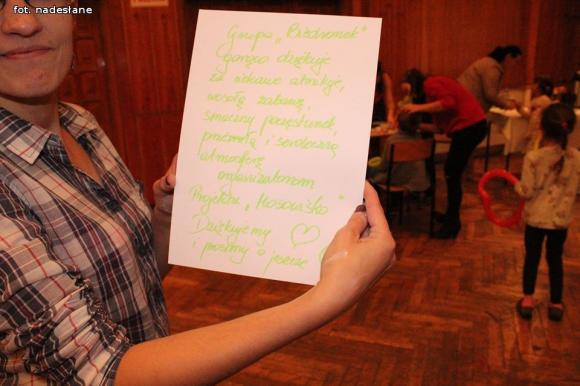 fot. nadesłane
Grupa „Biedronek"
gorąco dziękuje
za ciekawe atrakcje,
wesołą zabawę,
smaczny poczęstunek,
przemiłą i serdeczną
atmosferę
organizatorom
Projektu „Mosowisko"
Dziękujemy
i prosimy o jeszcze